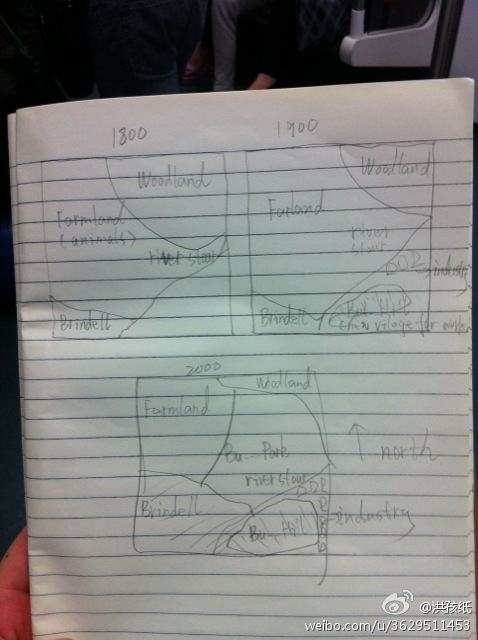 1800
1900
Woodland
Farmland
(animals)
river stour
Brindell
Woodland
Farland
river
stour
industry
Brindell
Hill
vilage for worker
2000
Woodland
Farmland
Bu Park
river stour
Brindell
Hill
north
industry
@洪孩纸
weibo.com/u/3629511453